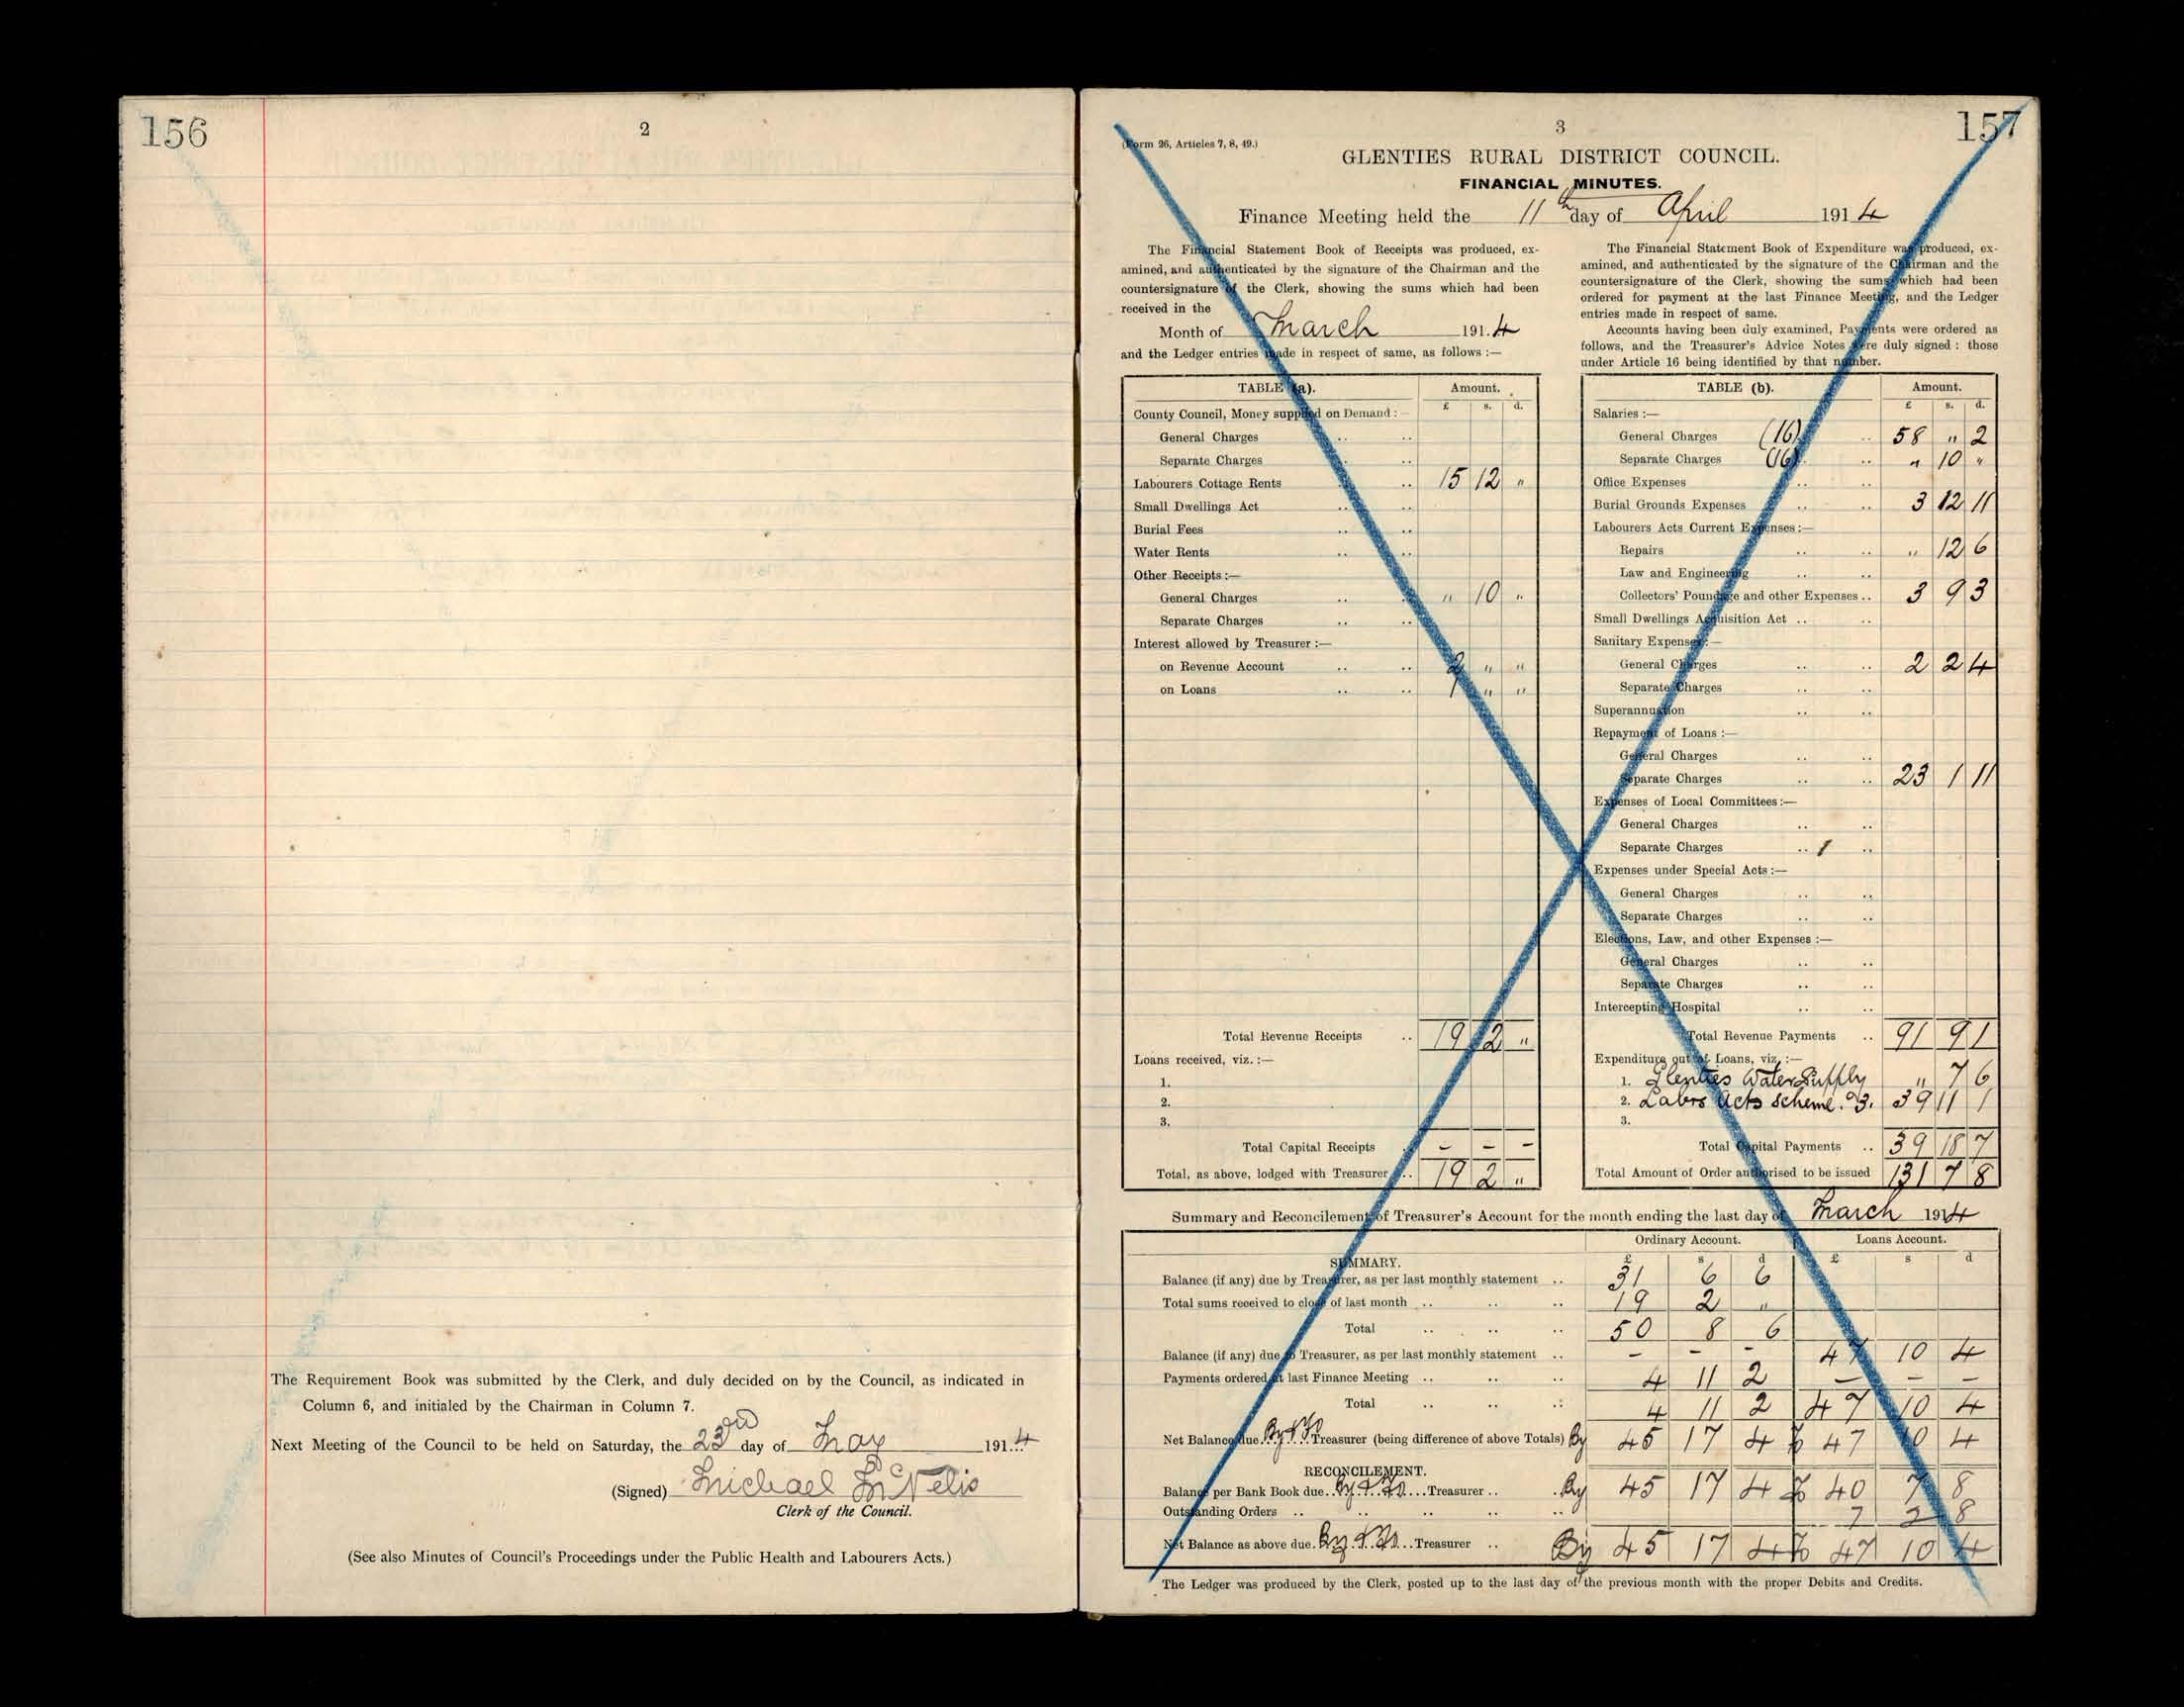 156
2
The Requirement Book was submitted by the Clerk, and duly decided on by the Council, as indicated in
Column 6, and initialed by the Chairman in Column 7.
Next Meeting of the Council to be held on Saturday, the 23rd day of May 1914
(Signed) Michael McNelis
Clerk of the Council.
(See also Minutes of Council's Proceedings under the Public Health and Labourers Acts.)
3
157
(Form 26, Articles 7, 8, 49.)
GLENTIES RURAL DISTRICT COUNCIL.
FINANCIAL MINUTES.
Finance Meeting held the 11th day of April 1914
The Financial Statement Book of Receipts was produced, ex-
amined, and authenticated by the signature of the Chairman and the
countersignature of the Clerk, showing the sums which had been
received in the
Month of March 1914
and the Ledger entries made in respect of same, as follows :—
TABLE (a). Amount.
£ s. d.
County Council, Money supplied on Demand :—
General Charges .. ..
Separate Charges .. ..
Labourers Cottage Rents .. 15 12 "
Small Dwellings Act .. ..
Burial Fees .. ..
Water Rents .. ..
Other Receipts :—
General Charges .. .. " 10 "
Separate Charges .. ..
Interest allowed by Treasurer :—
on Revenue Account .. .. 2 " "
on Loans .. .. 1 " "
Total Revenue Receipts .. 19 2 "
Loans received, viz. :—
1.
2.
3.
Total Capital Receipts – – –
Total, as above, lodged with Treasurer .. 19 2 "
The Financial Statement Book of Expenditure was produced, ex-
amined, and authenticated by the signature of the Chairman and the
countersignature of the Clerk, showing the sums which had been
ordered for payment at the last Finance Meeting, and the Ledger
entries made in respect of same.
Accounts having been duly examined, Payments were ordered as
follows, and the Treasurer's Advice Notes were duly signed : those
under Article 16 being identified by that number.
TABLE (b). Amount.
£ s. d.
Salaries :—
General Charges (16) .. 58 " 2
Separate Charges (16) .. " 10 "
Office Expenses .. ..
Burial Grounds Expenses .. .. 3 12 11
Labourers Acts Current Expenses :—
Repairs .. .. " 12 6
Law and Engineering .. ..
Collectors' Poundage and other Expenses .. 3 9 3
Small Dwellings Acquisition Act .. ..
Sanitary Expenses :—
General Charges .. .. 2 2 4
Separate Charges .. ..
Superannuation .. ..
Repayment of Loans :—
General Charges .. ..
Separate Charges .. .. 23 1 11
Expenses of Local Committees :—
General Charges .. ..
Separate Charges .. ..
Expenses under Special Acts :—
General Charges .. ..
Separate Charges .. ..
Elections, Law, and other Expenses :—
General Charges .. ..
Separate Charges .. ..
Intercepting Hospital .. ..
Total Revenue Payments .. 91 9 1
Expenditure out of Loans, viz. :—
1. Glenties Water Supply " 7 6
2. Labrs Acts Scheme. 3. 39 11 1
3.
Total Capital Payments .. 39 18 7
Total Amount of Order authorised to be issued 131 7 8
Summary and Reconcilement of Treasurer's Account for the month ending the last day of March 1914
Ordinary Account. Loans Account.
£ s d £ s d
SUMMARY.
Balance (if any) due by Treasurer, as per last monthly statement .. 31 6 6
Total sums received to close of last month .. .. .. 19 2 "
Total .. .. .. 50 8 6
Balance (if any) due to Treasurer, as per last monthly statement .. – – – 47 10 4
Payments ordered at last Finance Meeting .. .. .. 4 11 2 – – –
Total .. .. .. 4 11 2 47 10 4
Net Balance due By & To Treasurer (being difference of above Totals) By 45 17 4 To 47 10 4
RECONCILEMENT.
Balance per Bank Book due By & To Treasurer .. By 45 17 4 To 40 7 8
Outstanding Orders .. .. .. .. .. 7 2 8
Net Balance as above due By & To Treasurer .. By 45 17 4 To 47 10 4
The Ledger was produced by the Clerk, posted up to the last day of the previous month with the proper Debits and Credits.